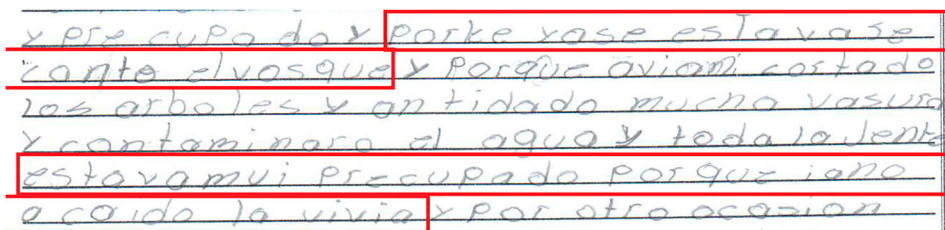 y pre cupa do y porke yase estavase
canto elvosque y porque aviam cortado
los arboles y an tidado mucha vasura
y contaminaro el agua y toda la Jente
estavamui precupado porque iano
a caido la vivia y por otro ocasion